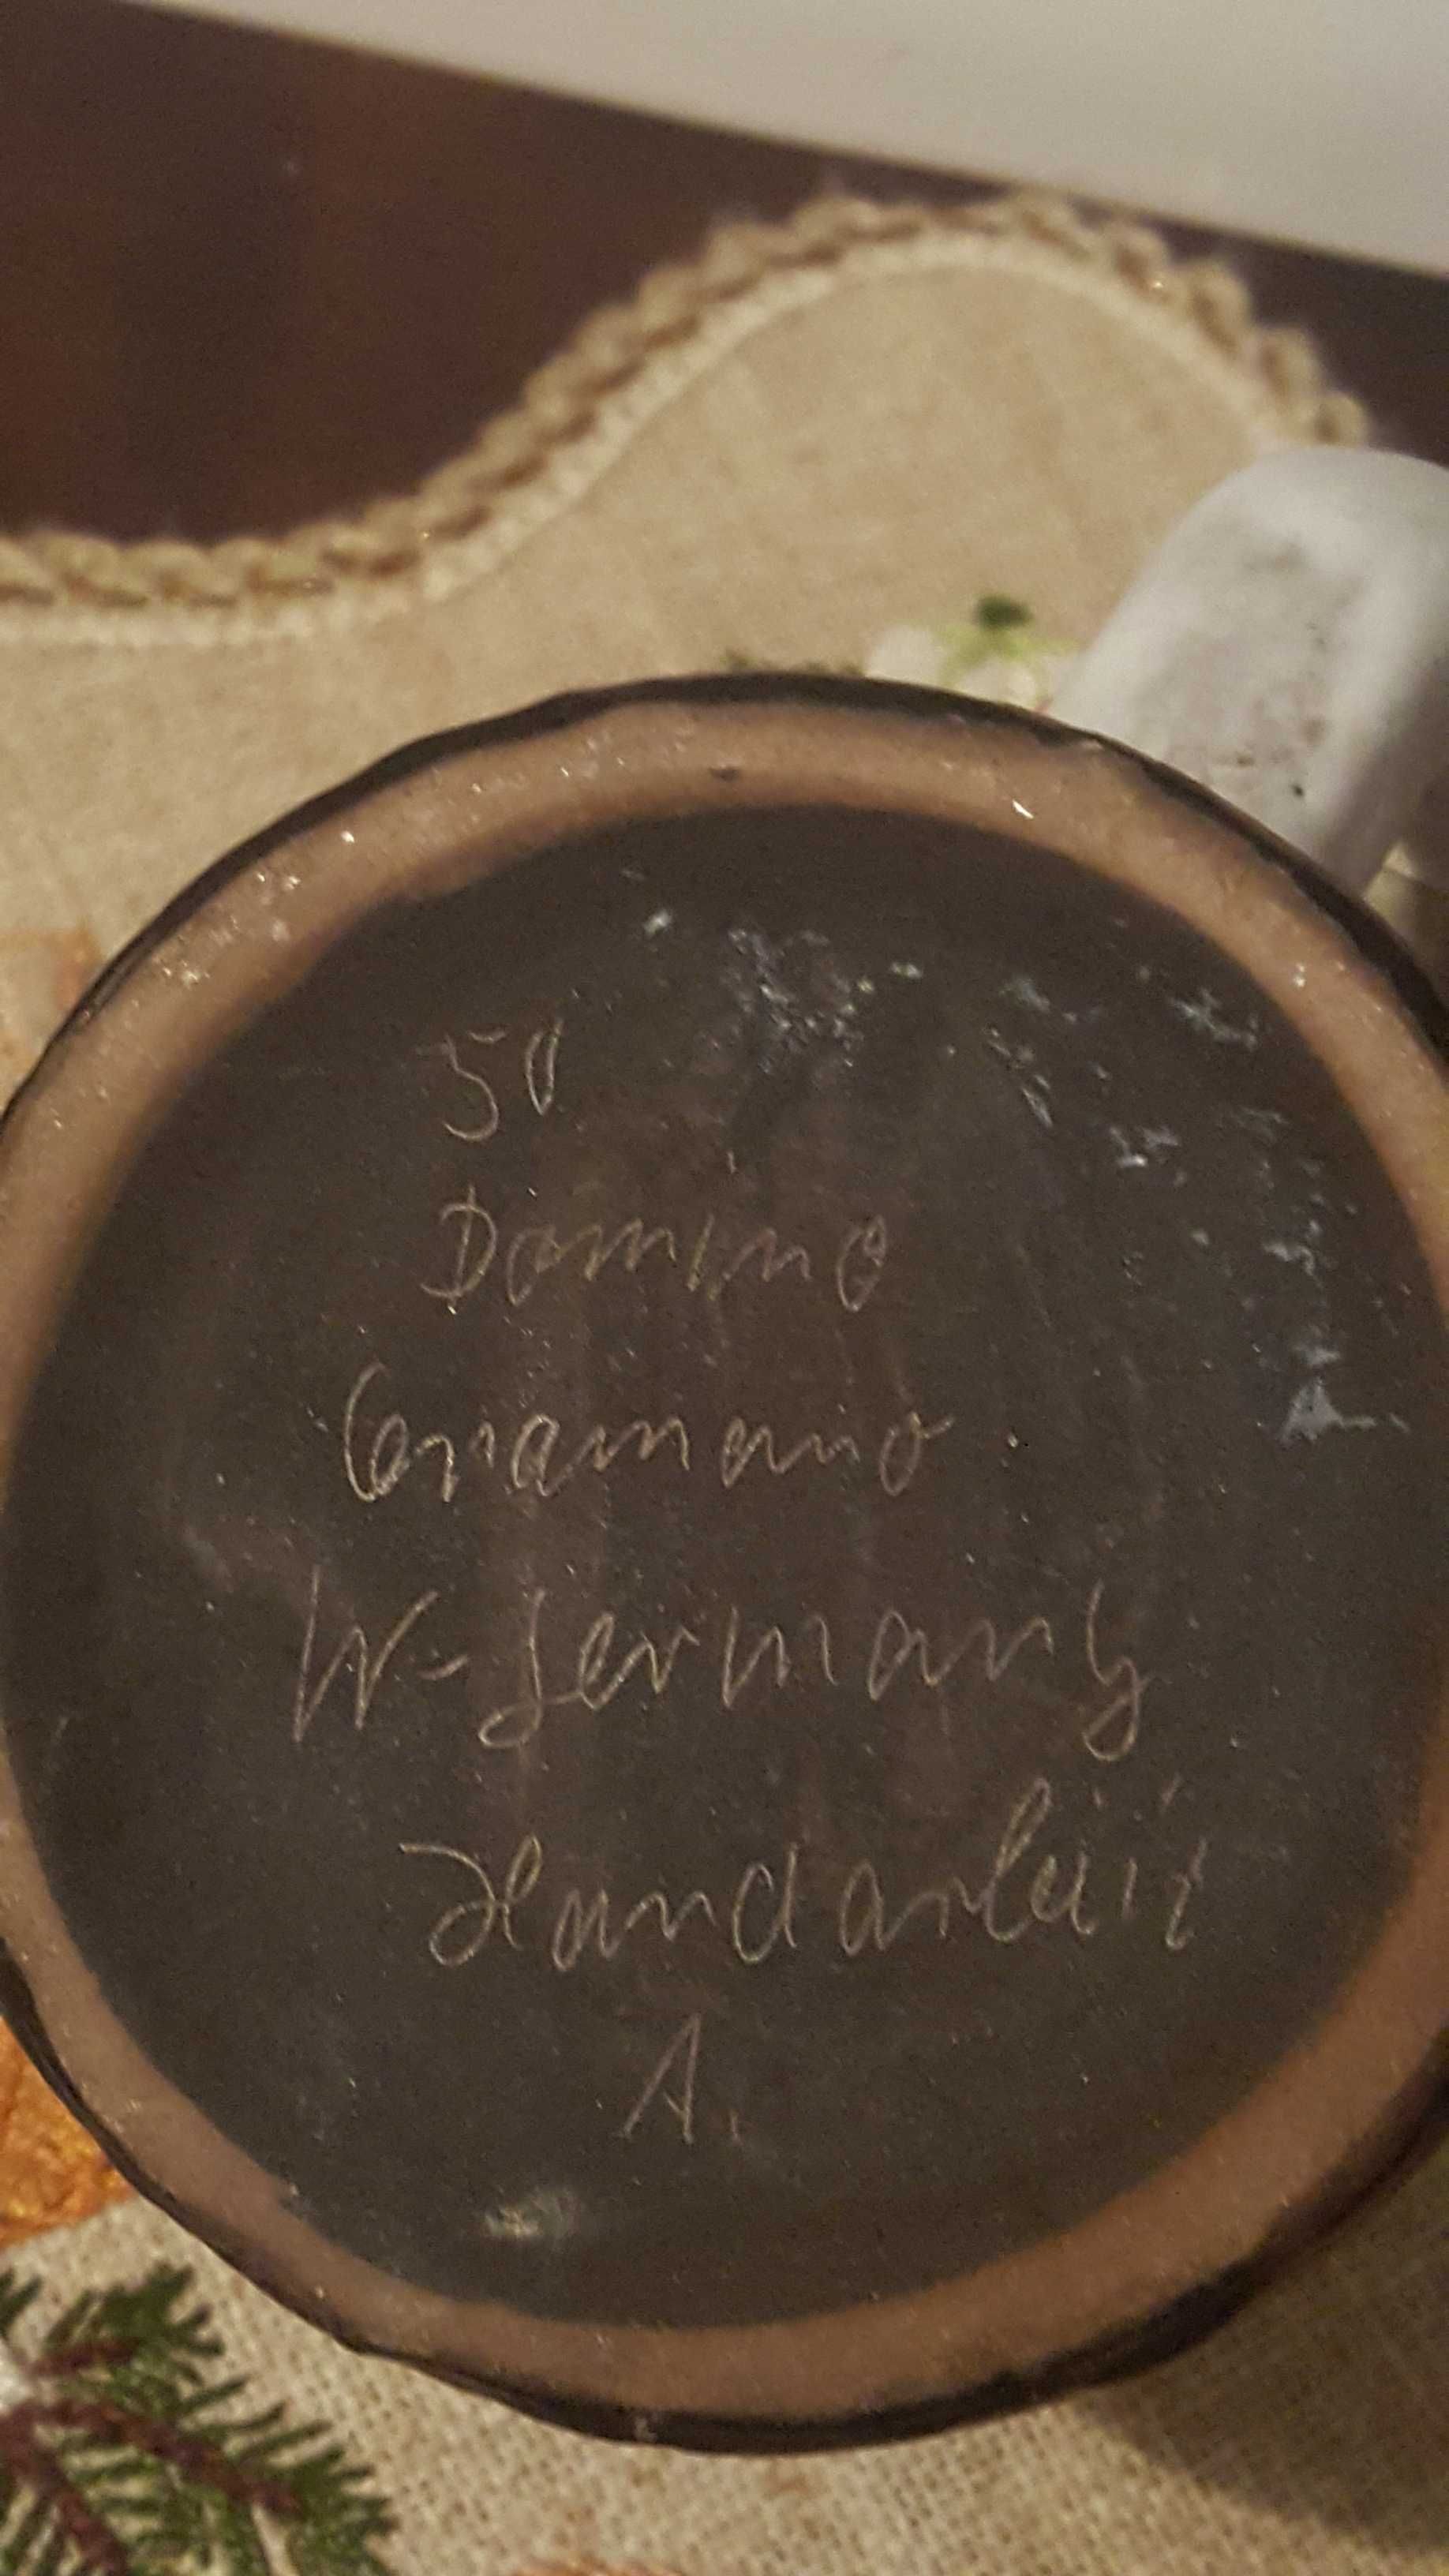 50
Domino
Ceramano
W-Germany
Handarbeit
A.